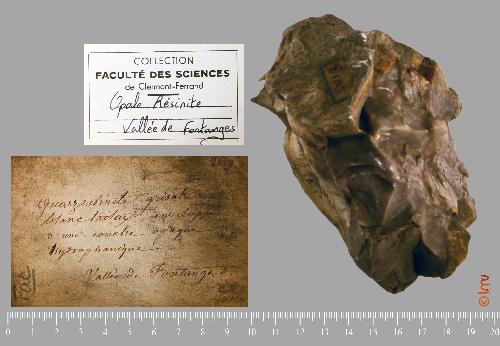 COLLECTION
FACULTÉ DES SCIENCES
de Clermont-Ferrand
Opale Résinite
Vallée de Fontanges
Quarz résinite grisatre
blanc laiteux enveloppé
d'une couche opaque
hydrophanique
Vallée de Fontanges
Fac
© lmv
0 1 2 3 4 5 6 7 8 9 10 11 12 13 14 15 16 17 18 19 20